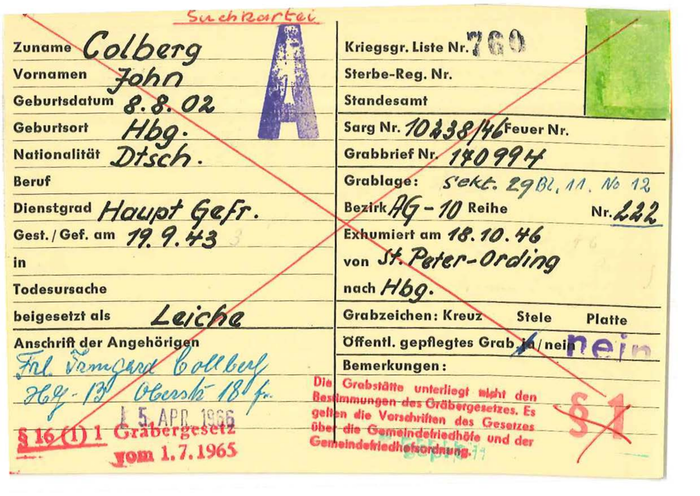 Suchkartei
Zuname Colberg
Vornamen John
Geburtsdatum 8.8.02
Geburtsort Hbg.
Nationalität Dtsch.
Beruf
Dienstgrad Haupt Gefr.
Gest./Gef. am 19.9.43
in
Todesursache
beigesetzt als Leiche
Anschrift der Angehörigen
Frl. Irmgard Collberg
Hbg-13 Oberstr. 18
5. APR. 1966
§ 16 (1) 1 Gräbergesetz
vom 1.7.1965
A
Kriegsgr. Liste Nr. 760
Sterbe-Reg. Nr.
Standesamt
Sarg Nr. 10238/46 Feuer Nr.
Grabbrief Nr. 170994
Grablage: Sekt. 29 Bl. 11. No 12
Bezirk AG-10 Reihe Nr. 222
Exhumiert am 18.10.46
von St. Peter-Ording
nach Hbg.
Grabzeichen: Kreuz Stele Platte
Öffentl. gepflegtes Grab ja/nein nein
Bemerkungen:
Die Grabstätte unterliegt nicht den
Bestimmungen des Gräbergesetzes. Es
gelten die Vorschriften des Gesetzes
über die Gemeindefriedhöfe und der
Gemeindefriedhofsordnung.
§ 1